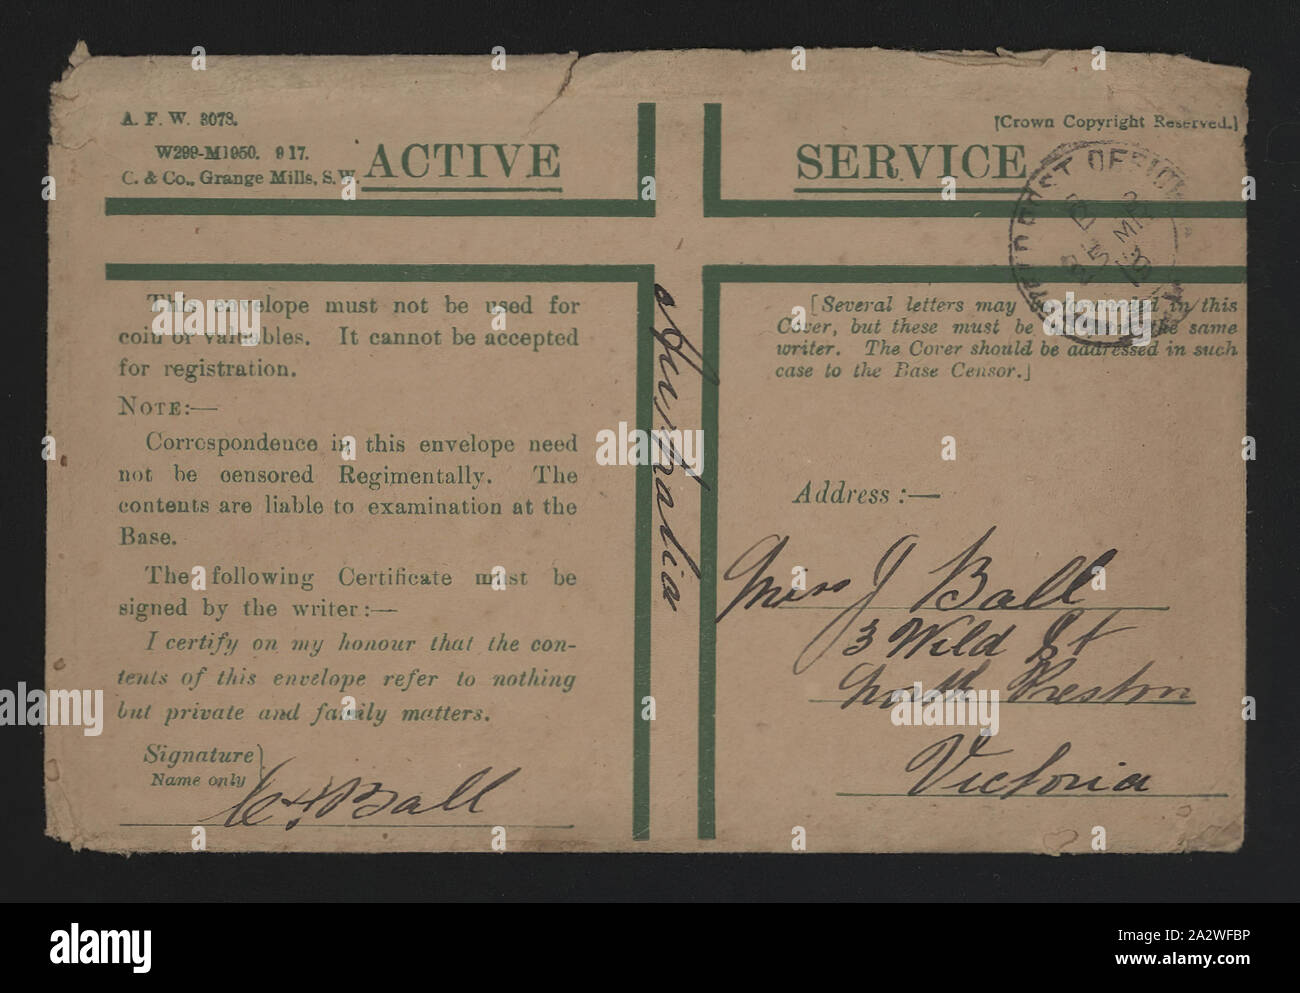 A. F. W. 3078.
W299-M1950. 9 17.
C. & Co., Grange Mills, S.W.
ACTIVE SERVICE
[Crown Copyright Reserved.]
This envelope must not be used for
coin or valuables. It cannot be accepted
for registration.
NOTE:—
Correspondence in this envelope need
not be censored Regimentally. The
contents are liable to examination at the
Base.
The following Certificate must be
signed by the writer:—
I certify on my honour that the con-
tents of this envelope refer to nothing
but private and family matters.
Signature
Name only
Ball
Australia
FIELD POST OFFICE
[Several letters may be forwarded in this
Cover, but these must be all from the same
writer. The Cover should be addressed in such
case to the Base Censor.]
Address:—
Miss J Ball
3 Wild St
North Preston
Victoria
alamy
alamy
Image ID: 2A2WFBP
www.alamy.com